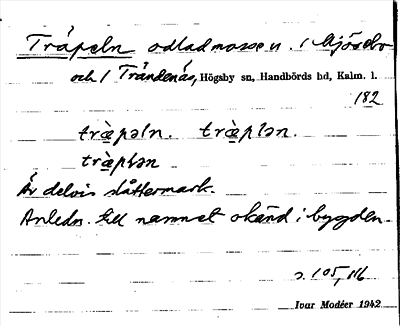 Tråpeln odladmosse u. / Mjösebo
och / Tråndenäs, Högsby sn, Handbörds hd, Kalm. l.
182
træ̀pəln. træ̀plən.
træ̀płən
Är delvis slåttermark.
Anledn. till namnet okänd i bygden.
s. 105, 116
Ivar Modéer 1942